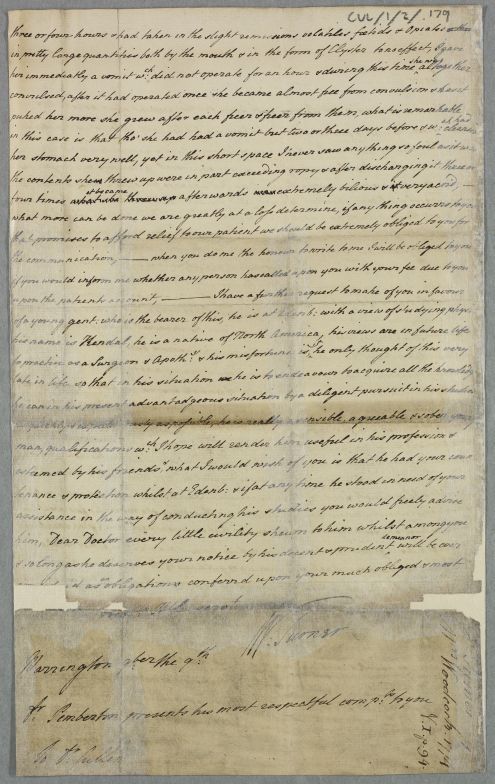 CUL/1/2/179
three or four hours & had taken in the slight remissions volatiles fœtids & opiates
in pretty large quantities both by the mouth & in the form of Clyster has effect, I gave
her immediately a vomit wch did not operate for an hour & during this time she was altogether
convulsed, after it had operated once she became almost free from convulsion & has it
puked her more she grew after each freer & freer from them, what is remarkable
in this case is that tho' she had had a vomit but two or three days before & wch had cleansed
her stomach very well, yet in this short space I never saw any thing so foul as it was
the contents she threw up were in part exceeding ropy & after discharging it three or
four times it became afterwards extremely bilious & very acrid, —
what more can be done we are greatly at a loss determine, if any thing occurs to you
that promises to afford relief to our patient we should be extremely obliged to you for
the communication, — when you do me the honour to write to me I will be obliged to you
if you would inform me whether any person has called upon you with your fee due to you
upon the patients account. — I have a further request to make of you in favour
of a young gent: who is the bearer of this, he is at Edinb: with a view of studying physic
his name is Hendal, he is a native of North America, his views are in future life
to practice as a Surgeon & Apothy: & his misfortune is, he only thought of this very
late in life so that in his situation he is to endeavour to acquire all the knowledge
he can in his present advantadgeous situation by a diligent pursuit in his studies
as possible, he is really a sensible, agreeable & sober young
man, qualifications wch I hope will render him useful in his profession &
esteemed by his friends, what I would wish of you is that he had your coun
tenance & protection whilst at Edenb: & if at any time he stood in need of your
assistance in the way of conducting his studies you would freely advise
him, Dear Doctor every little civility shewn to him whilst among you
& so long as he deserves your notice by his decent & prudent demeanor will be ever
as obligations conferr'd upon your much obliged & most
W. Turner
Warrington the 9th
Dr Pemberton presents his most respectful compts to you
To Dr Cullen